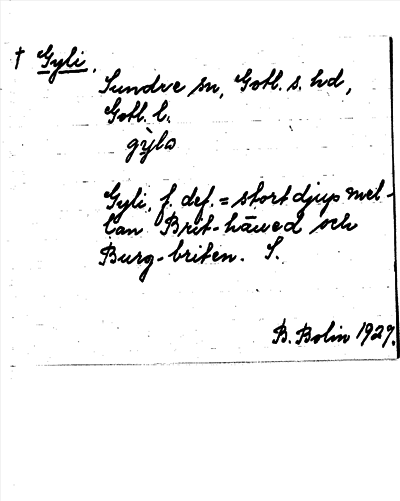 † Gyli.
Sundre sn, Gotl. s. hd,
Gotl. l.
Gyli, f. def. = stort djup mel-
lan Brit-häued och
Burg-briten. S.
B. Bolin 1927.